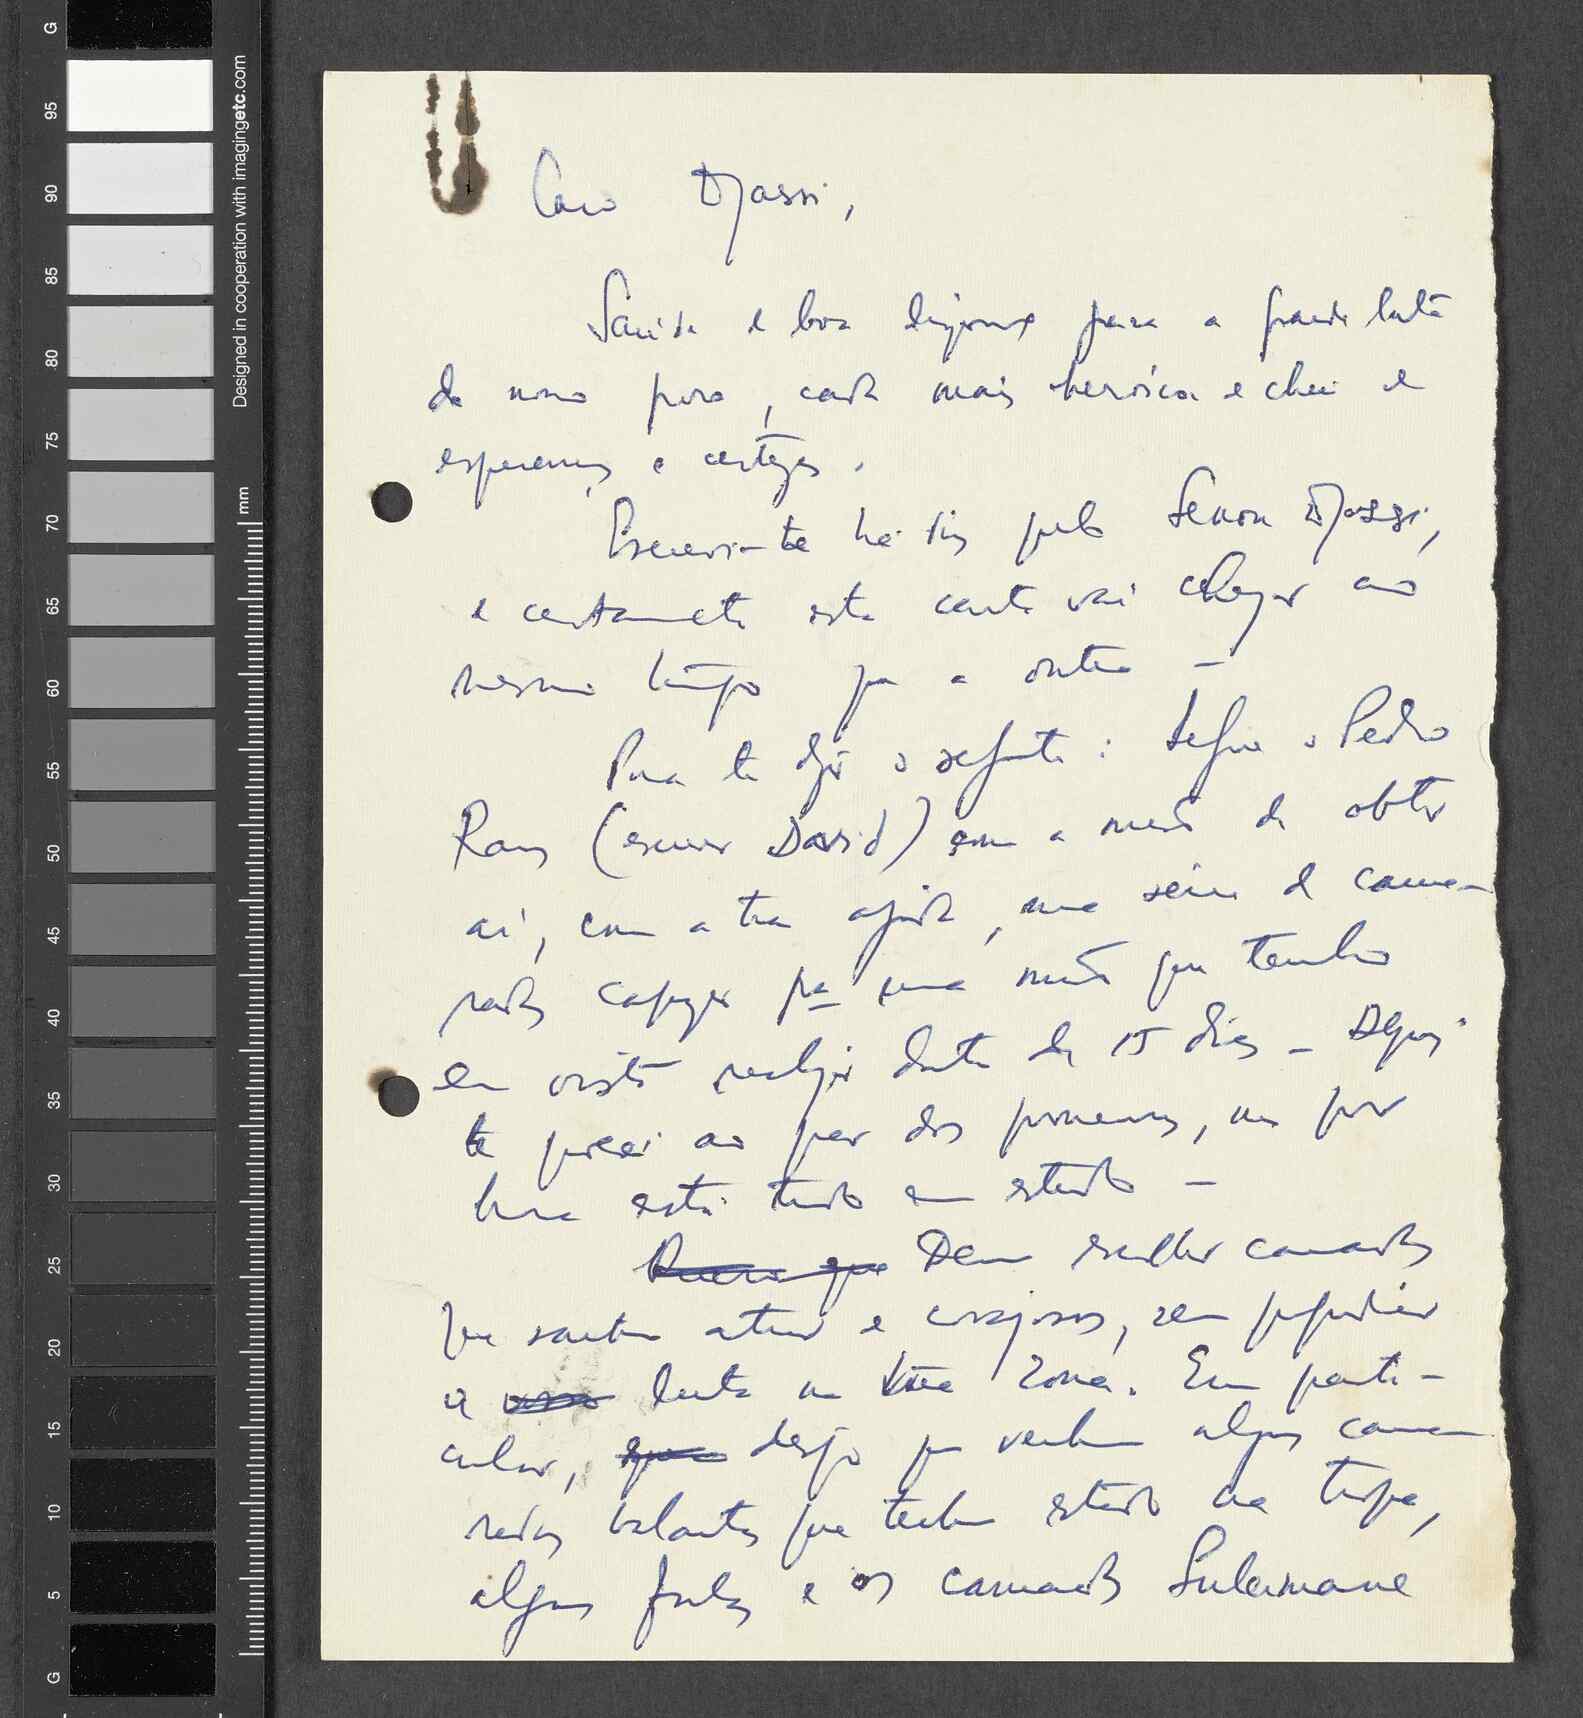 G
95
90
85
80
75
70
65
60
55
50
45
40
35
30
25
20
15
10
5
G
Designed in cooperation with imagingetc.com
mm
Caro Djassi,
Saúde e boa para a grande luta
do nosso povo, cada mais heróica e cheia de
esperanças e certezas.
Escrevi-te há dias pelo Senon Djassi,
e certamente esta carta vai chegar ao
mesmo tempo que a outra —
Para te dizer o seguinte: segue o Pedro
Ramos (escrever David) com a missão de obter
aí, com a tua ajuda, uma série de cama-
radas capazes pa uma missão que tenho
em vista realizar dentro de 15 dias — Depois
te porei ao par dos pormenores, mas por
hora está tudo em estudo —
Quero que Devem escolher camaradas
que saibam atirar e corajosos, sem prejudicar
a luta na tua zona. Em parti-
cular, que desejo que venham alguns cama
radas balantas que tenham estado na tropa,
alguns fulas e os camaradas Sulemane